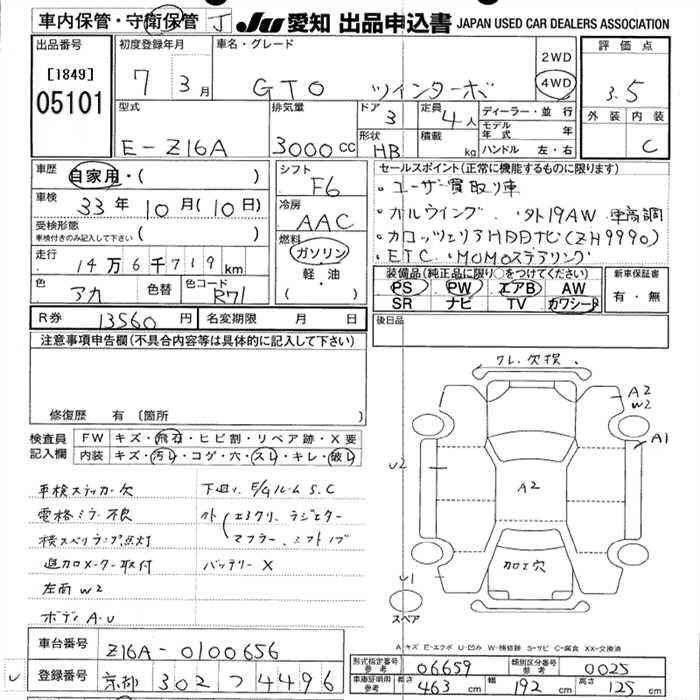 車内保管・守衛保管 J JU 愛知 出品申込書 JAPAN USED CAR DEALERS ASSOCIATION
出品番号
[1849]
05101
初度登録年月
7 3月
車名・グレード
GTO ツインターボ
2WD
4WD
評価点
3.5
外装 内装
C
型式
E-Z16A
排気量
3000 CC
ドア 3
形状 HB
定員 4人
積載 kg
ディーラー・並行
モデル年式 年
ハンドル 左・右
車歴 自家用・( )
車検 33年10月(10日)
受検形態
車検付きのみ記入して下さい ( )
走行 14万6千719km
色 アカ 色替 色コード R71
シフト
F6
冷房
AAC
燃料
ガソリン
軽・油
( )
セールスポイント(正常に機能するものに限ります)
・ユーザー買取り車
・ガルウイング ・外19AW 車高調
・カロッツェリアHDDナビ(ZH9990)
・ETC ・MOMOステアリング
装備品(純正品に限り○をつけてください)
PS PW エアB AW
SR ナビ TV カワシート
新車保証書
有・無
R券 13560円 名変期限 月 日
後日品
注意事項申告欄(不具合内容等は具体的に記入して下さい)
修復歴 有(箇所 )
検査員記入欄
FW キズ・飛石・ヒビ割・リペア跡・X要
内装 キズ・汚れ・コゲ・穴・スレ・キレ・破れ
車検ステッカー欠 下廻り、E/Gルーム S.C
電格ミラー不良 外(エアクリ、ラジエター
横スベリランプ点灯 マフラー、シフトノブ
追加メーター取付 バッテリーX
左両W2
ボディA.U
クレ.欠損
A2
W2
A1
U2
A2
加工穴
U1
スペア
A-キズ E-エクボ U-凹み W-補修跡 S-サビ C-腐食 XX-交換済
車台番号 Z16A-0100656
登録番号 京都 302 フ 4496
形式指定番号 参考 06659 類別区分番号 参考 0025
車庫証明用 参考 長さ 463cm 幅 192cm 高さ 125cm